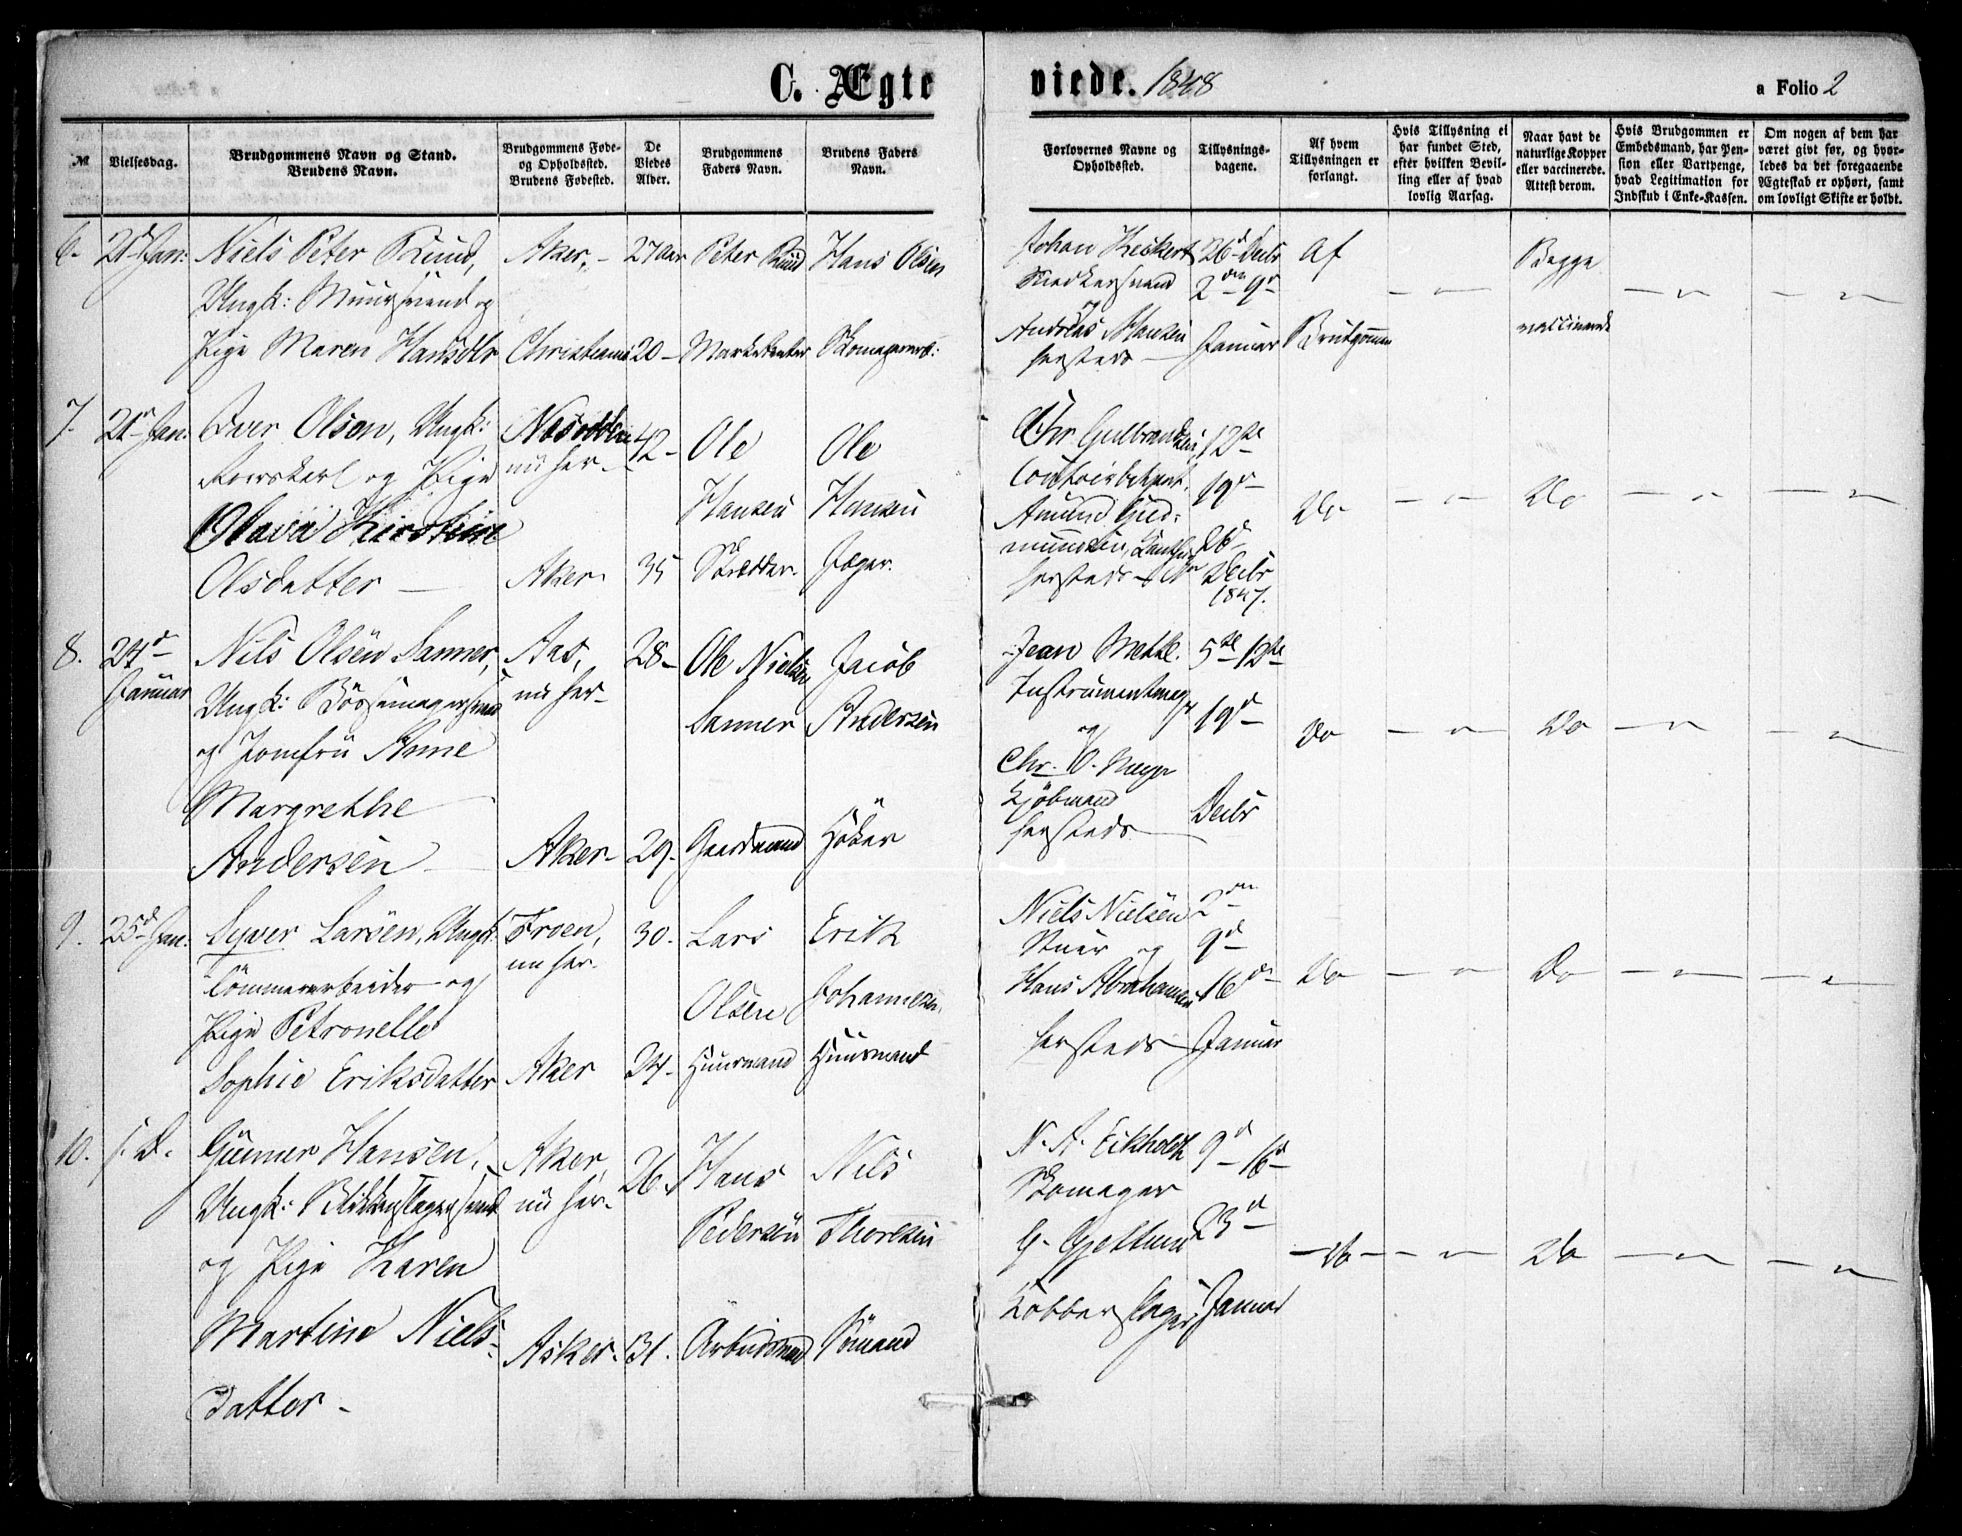 C. Ægte
viede. 1848
a Folio 2
№
Vielsesdag.
Brudgommens Navn og Stand.
Brudens Navn.
Brudgommens Føde-
og Opholdssted.
Brudens Fødested.
De
Viedes
Alder.
Brudgommens
Faders Navn.
Brudens Faders
Navn.
Forlovernes Navne og
Opholdssted.
Tillysnings-
dagene.
Af hvem
Tillysningen er
forlangt.
Hvis Tillysning ei
har fundet Sted,
efter hvilken Bevil-
ling eller af hvad
lovlig Aarsag.
Naar havt de
naturlige Kopper
eller vaccinerede.
Attest derom.
Hvis Brudgommen er
Embedsmand, har Pen-
sion eller Vartpenge,
hvad Legitimation for
Indskud i Enke-Kassen.
Om nogen af dem har
været givt før, og hvor-
ledes da det foregaaende
Ægteskab er ophørt, samt
om lovligt Skifte er holdt.
6.
Jan:
Niels Peter Ruud,
Ungk: Muursvend og
Pige Maren Hansdtr
Aker,
Christiania
27 aar
20
Peter Ruud
Marketenter
Hans Olsen
Skomagerm:
Johan
og
Andreas Hansen
hersteds
26d Decbr
2den 9d
Januar
Af
Brudgommen
Begge
vaccinerede
7.
21d Jan:
Iver Olsen, Ungk:
og Pige
Olava Kirstine
Olsdatter
Nesodden
nu her
Aker
42
35
Ole
Hansen
Skrædder
Ole
Hansen
Jæger.
Chr. Gulbrandsen,
Amund Gud-
mundsen,
hersteds
12te
19d
26d
Decbr
1847.
Do
Do
8.
24d
Januar
Nils Olsen Sanner,
Ungk: Bøssemagersvend
og Jomfru Anne
Margrethe
Andersen
Aas,
nu her
Aker
28
29
Ole Nielsen
Sanner
Gaardmand
Jacob
Andersen
Høker
Jean
Instrumentmager
og
Chr. O.
Kjøbmand
hersteds
5te 12te
19d
Decbr
Do
Do
9.
25d Jan:
Syver Larsen, Ungk:
Tømmerarbeider og
Pige Petronelle
Sophie Eriksdatter
Froen,
nu her.
Aker
30
24
Lars
Olsen
Huusmand
Erik
Johannesen,
Huusmand
Niels Nielsen
og
Hans Abrahamsen
hersteds
2den
9d
16de
Januar
Do
Do
10.
s. D.
Gunner Hansen,
Ungk: Blikkenslagersvend
og Pige Karen
Martine Niels-
datter
Aker,
nu her.
Asker
26
31.
Hans
Pedersen
Arbeidsmand
Nils
Thoresen
Sømand
N. A. Eikholdt
Skomager
G. Gjettum
Kobberslager,
9d 16d
23d
Januar
Do
Do